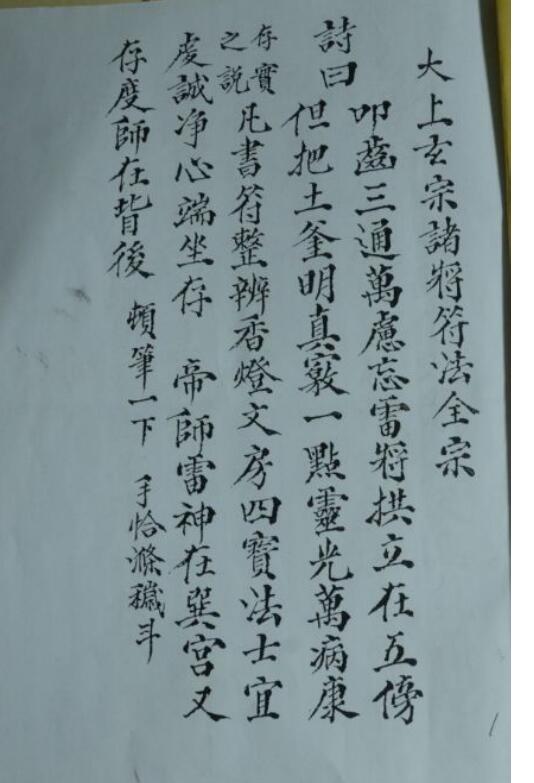 大上玄宗諸將符法全宗
詩曰
叩齒三通萬慮忘雷將拱立在五傍
但把土釜明真竅一點靈光萬病康
存實之說
凡書符整辨香燈文房四寶法士宜
虔誠净心端坐存 帝師雷神在巽宮又
存度師在背後 頓筆一下 手恰滌穢斗
1